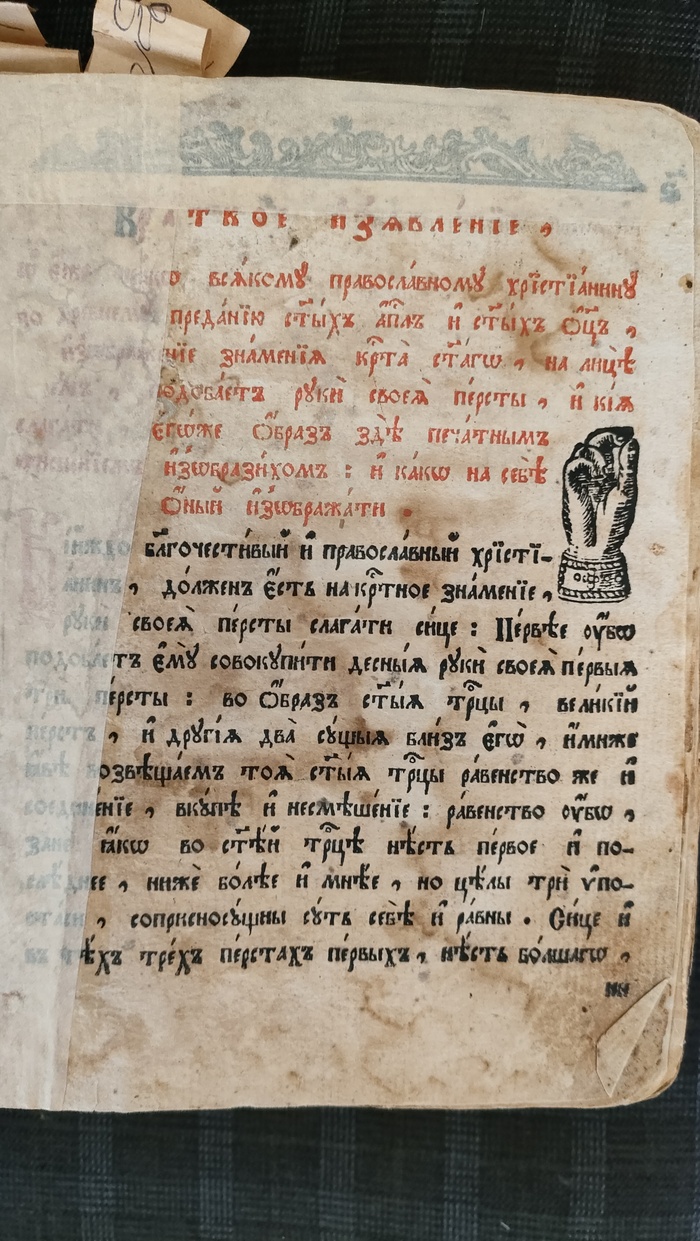 КРАТКОЕ ИЗѦВЛЕНІЕ ,
о всѧ́комꙋ правосла́вномꙋ хрїстїа́ниннꙋ
преда́нїю ст҃ы́хъ а҆пл҃ъ и҆ ст҃ы́хъ ѻ҆ц҃ъ ,
нїе зна́менїѧ крⷭ҇та̀ ст҃а́гѡ , на лицѣ̀
одоба́етъ рꙋкѝ своеѧ̀ пе́рсты , и҆ кі́ѧ
є҆гѡ́же ѻ҆́бразъ здѣ̀ печа́тнымъ
и҆зѡбрази́хомъ : и҆ ка́кѡ на себѣ̀
ѻ҆́ный и҆зѡбража́ти .
бл҃гочести́вый и҆ правосла́вный хрїстї-
, до́лженъ є҆́сть на крⷭ҇тное зна́менїе ,
своеѧ̀ пе́рсты слага́ти си́це : Пе́рвѣе ᲂу҆́бѡ
тъ є҆мꙋ̀ совокꙋпи́ти десны́ѧ рꙋкѝ своеѧ̀ пе́рвыѧ
пе́рсты : во ѻ҆́бразъ ст҃ы́ѧ трⷪ҇цы , вели́кїй
, и҆ дрꙋгі́ѧ два̀ сꙋ́щыѧ бли́зъ є҆гѡ̀ , и҆́миже
озвѣща́емъ тоѧ̀ ст҃ы́ѧ трⷪ҇цы ра́венство же и҆
е́нїе , вкꙋ́пѣ и҆ несмѣше́нїе : ра́венство ᲂу҆́бѡ ,
ꙗ҆́кѡ во ст҃ѣ́й трⷪ҇цѣ нѣ́сть пе́рвое и҆ по-
нее , нижѐ бо́лѣе и҆ мнѣ́е , но цѣ́лы трѝ ѵ҆по-
, соприсносꙋ́щны сꙋ́ть себѣ̀ и҆ ра́вны . Си́це и҆
ѣ́хъ тре́хъ пе́рстахъ пе́рвыхъ , нѣ́сть бо́лшагѡ ,
ни